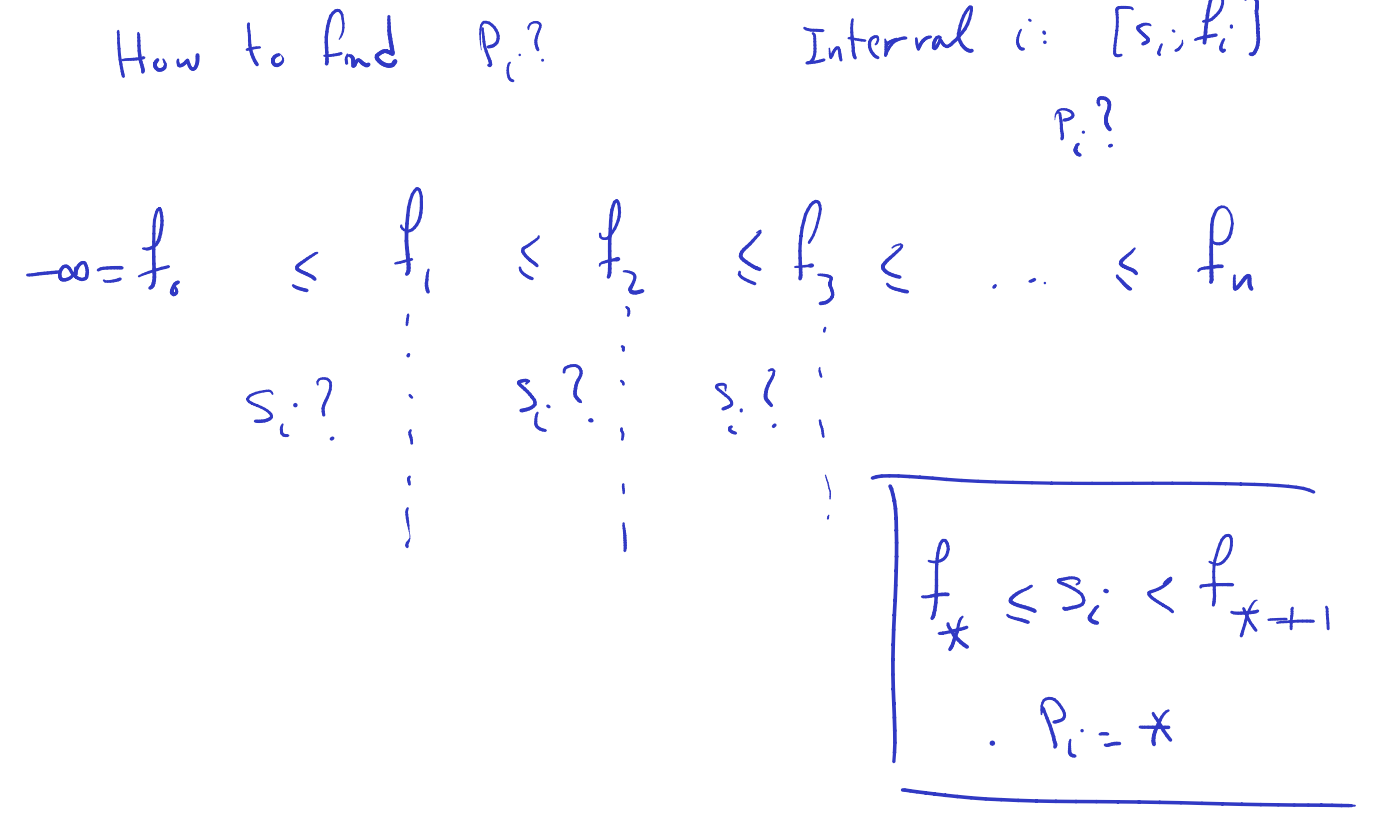 How to find P_i? Interval i: [s_i, f_i]
P_i?
-∞ = f_0 ≤ f_1 ≤ f_2 ≤ f_3 ≤ ... ≤ f_n
s_i? s_i? s_i?
f_* ≤ s_i < f_{*+1}
. P_i = *